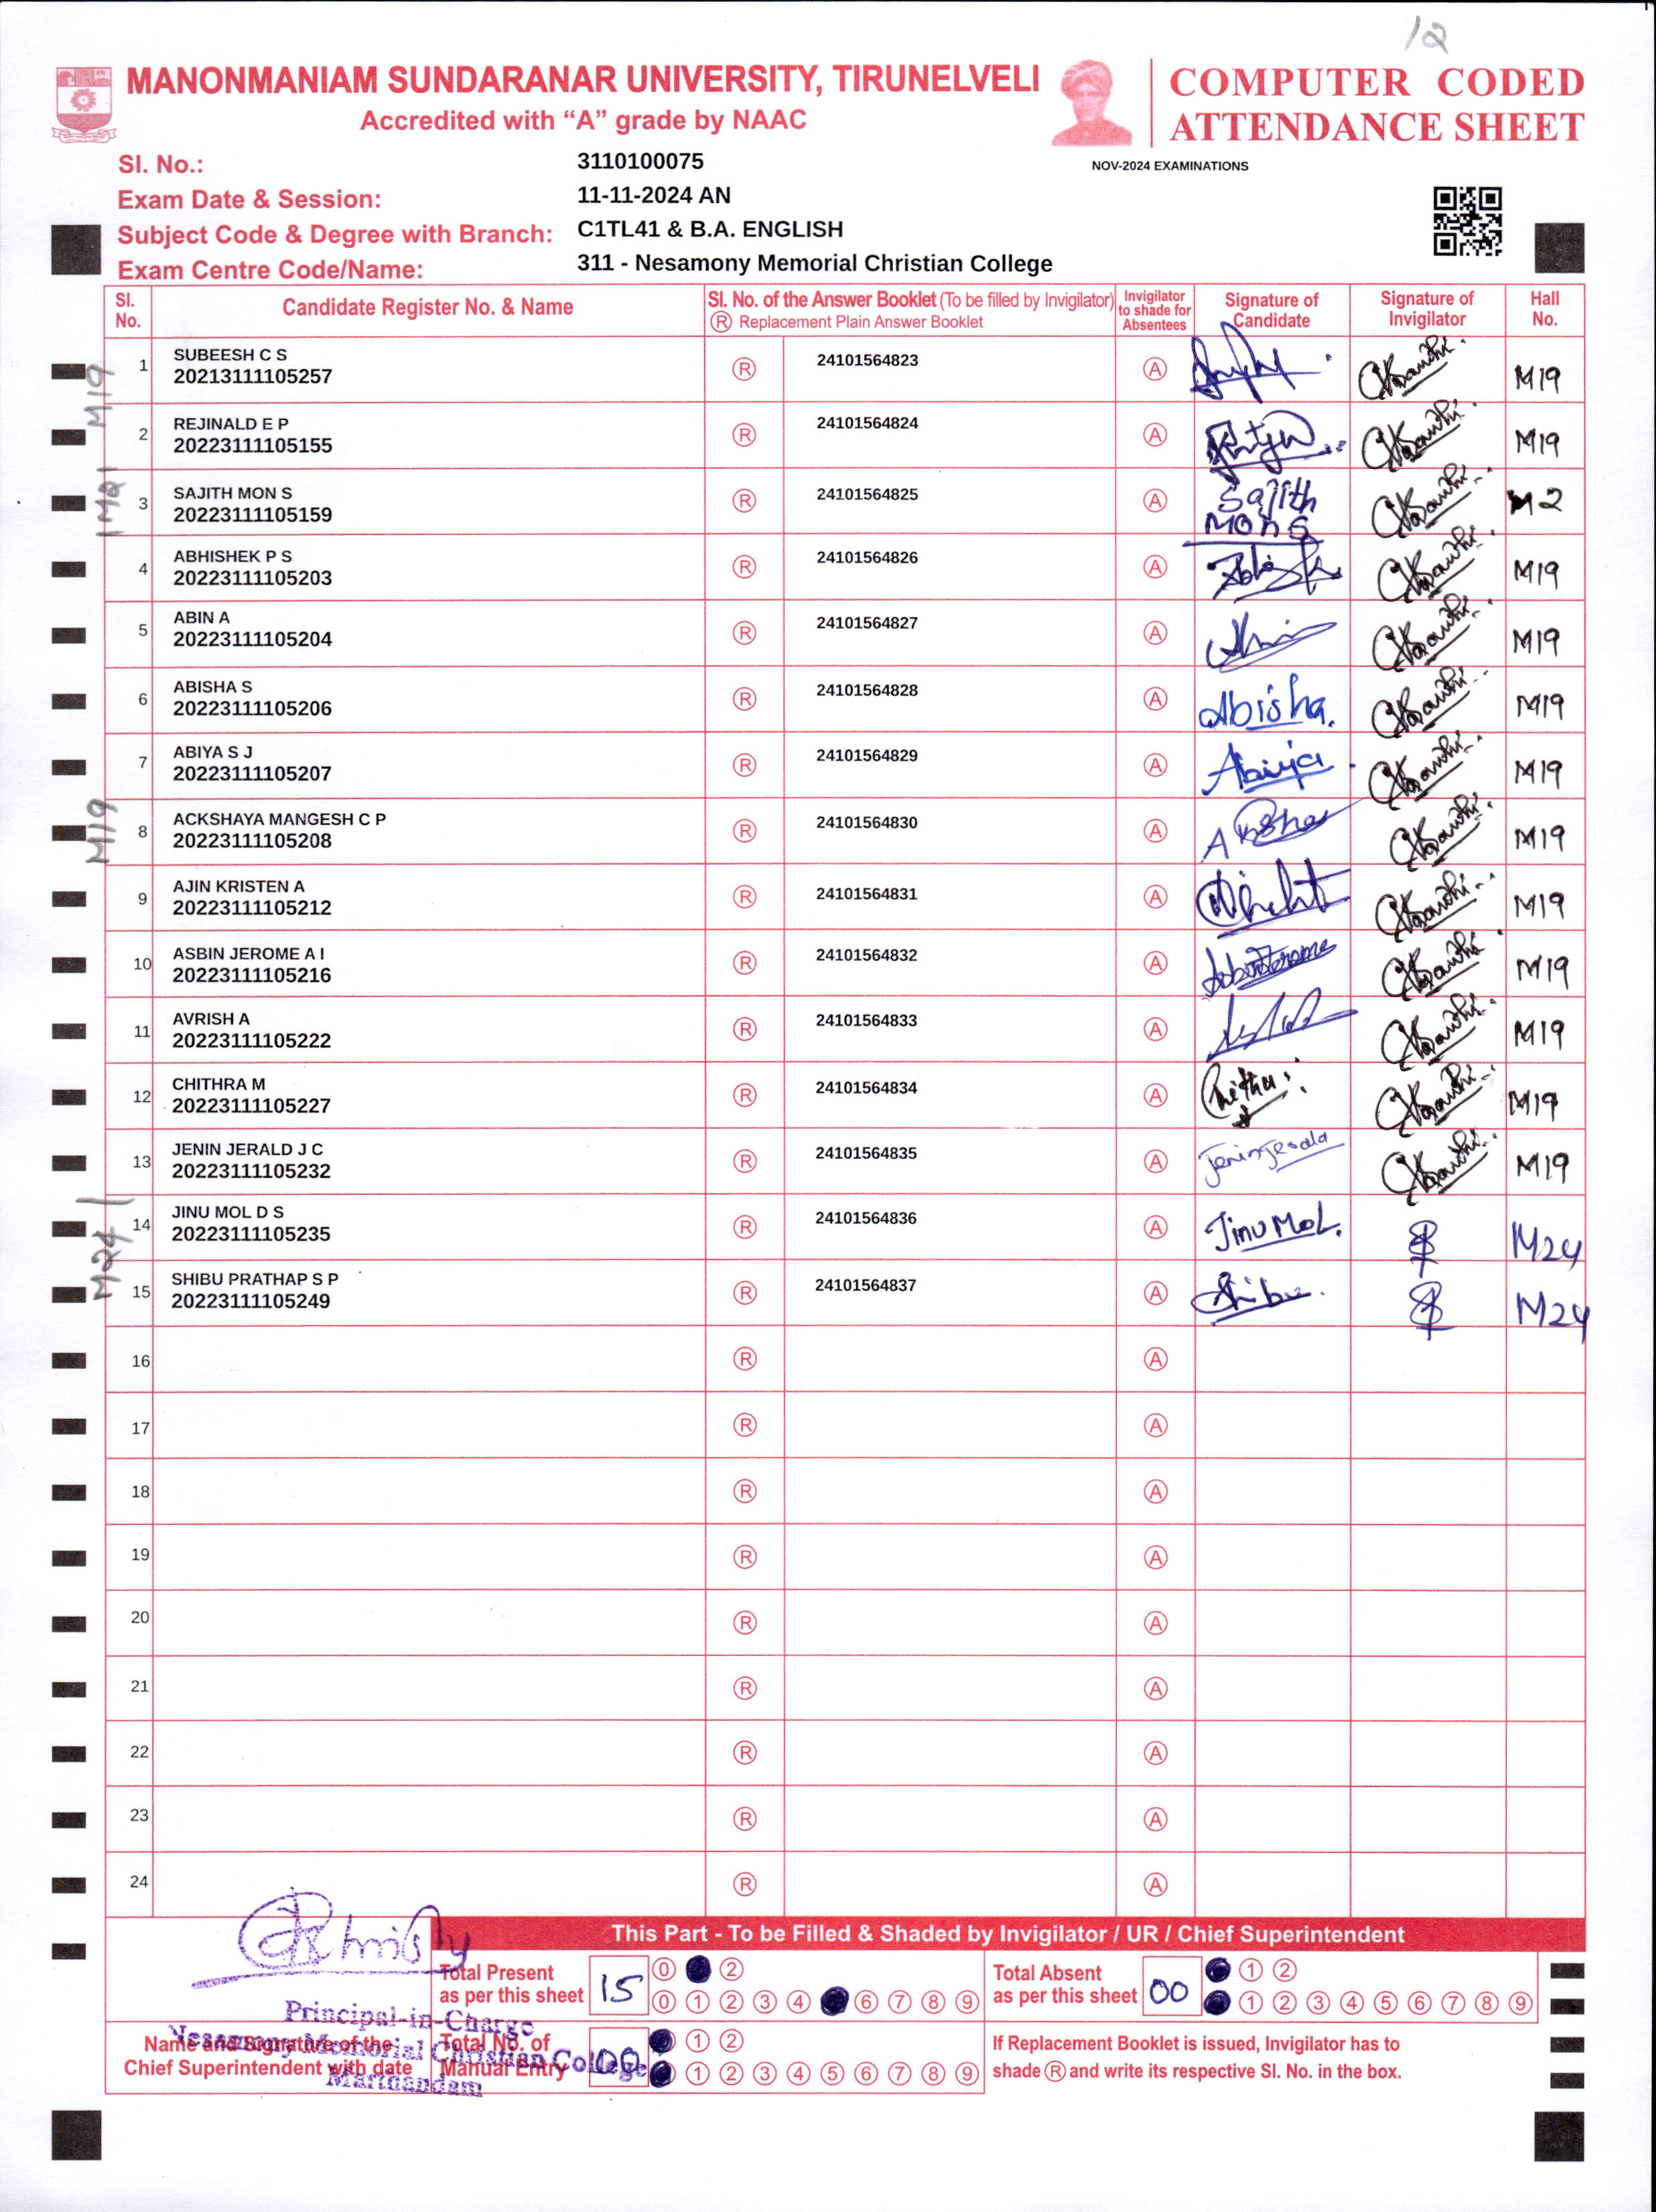 12
MANONMANIAM SUNDARANAR UNIVERSITY, TIRUNELVELI
Accredited with “A” grade by NAAC
COMPUTER CODED
ATTENDANCE SHEET
NOV-2024 EXAMINATIONS
Sl. No.: 3110100075
Exam Date & Session: 11-11-2024 AN
Subject Code & Degree with Branch: C1TL41 & B.A. ENGLISH
Exam Centre Code/Name: 311 - Nesamony Memorial Christian College
Sl. No. Candidate Register No. & Name Sl. No. of the Answer Booklet (To be filled by Invigilator) Ⓡ Replacement Plain Answer Booklet Invigilator to shade for Absentees Signature of Candidate Signature of Invigilator Hall No.
M19
1 SUBEESH C S Ⓡ 24101564823 Ⓐ M19
20213111105257
2 REJINALD E P Ⓡ 24101564824 Ⓐ M19
20223111105155
3 SAJITH MON S Ⓡ 24101564825 Ⓐ Sajith Mon S M2
20223111105159
4 ABHISHEK P S Ⓡ 24101564826 Ⓐ M19
20223111105203
5 ABIN A Ⓡ 24101564827 Ⓐ M19
20223111105204
6 ABISHA S Ⓡ 24101564828 Ⓐ Abisha. M19
20223111105206
7 ABIYA S J Ⓡ 24101564829 Ⓐ Abiya M19
20223111105207
M19
8 ACKSHAYA MANGESH C P Ⓡ 24101564830 Ⓐ M19
20223111105208
9 AJIN KRISTEN A Ⓡ 24101564831 Ⓐ M19
20223111105212
10 ASBIN JEROME A I Ⓡ 24101564832 Ⓐ M19
20223111105216
11 AVRISH A Ⓡ 24101564833 Ⓐ M19
20223111105222
12 CHITHRA M Ⓡ 24101564834 Ⓐ M19
20223111105227
13 JENIN JERALD J C Ⓡ 24101564835 Ⓐ M19
20223111105232
M24
14 JINU MOL D S Ⓡ 24101564836 Ⓐ Jinu Mol. M24
20223111105235
15 SHIBU PRATHAP S P Ⓡ 24101564837 Ⓐ Shibu. M24
20223111105249
16 Ⓡ Ⓐ
17 Ⓡ Ⓐ
18 Ⓡ Ⓐ
19 Ⓡ Ⓐ
20 Ⓡ Ⓐ
21 Ⓡ Ⓐ
22 Ⓡ Ⓐ
23 Ⓡ Ⓐ
24 Ⓡ Ⓐ
This Part - To be Filled & Shaded by Invigilator / UR / Chief Superintendent
Total Present as per this sheet 15 0 2
0 1 2 3 4 6 7 8 9
Total Absent as per this sheet 00 1 2
1 2 3 4 5 6 7 8 9
Principal-in-Charge
Nesamony Memorial Christian College
Marthandam
Name and Signature of the
Chief Superintendent with date
Total No. of Manual Entry 00 1 2
1 2 3 4 5 6 7 8 9
If Replacement Booklet is issued, Invigilator has to
shade Ⓡ and write its respective Sl. No. in the box.